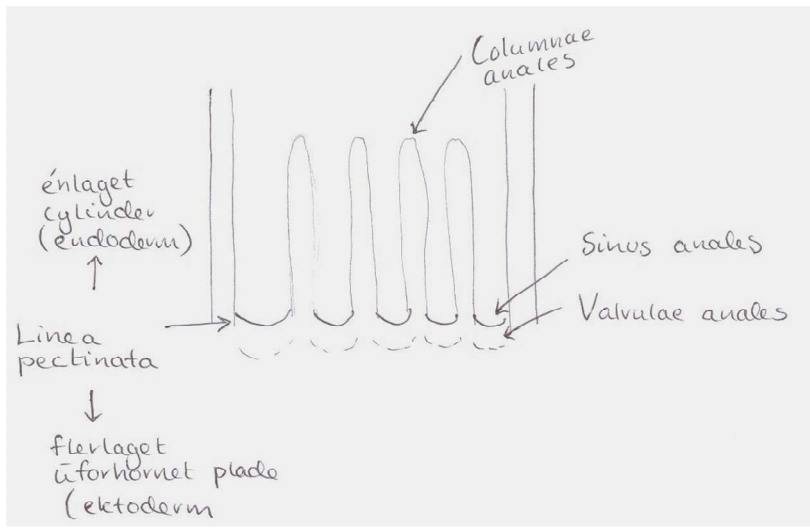 Columnae
anales
énlaget
cylinder
(endoderm)
Sinus anales
Valvulae anales
Linea
pectinata
flerlaget
uforhornet plade
(ektoderm